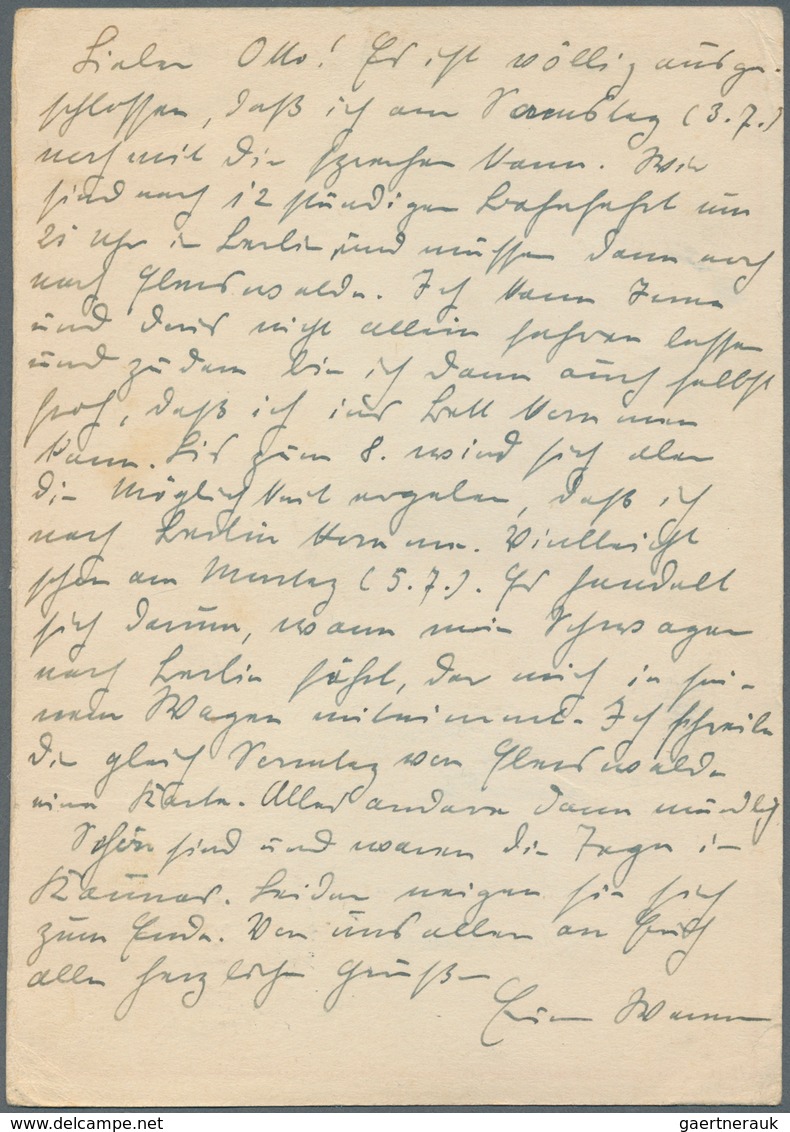 Lieber Otto! Es ist völlig ausge-
schlossen, daß ich am Samstag (3.7.)
noch mit Dir sprechen kann. Wir
sind nach 12 stündiger Bahnfahrt um
21 Uhr in Berlin, und müssen dann noch
nach Eberswalde. Ich kann
und nicht allein fahren lassen
und zudem bin ich dann auch selbst
froh, daß ich ins Bett kommen
kann. Bis zum 8. wird sich aber
die Möglichkeit ergeben, daß ich
nach Berlin komme. Vielleicht
schon am Montag (5.7.). Es handelt
sich darum, wann mein Schwager
nach Berlin fährt, der mich in sei-
nem Wagen mitnimmt. Ich schreibe
Dir gleich Sonntag von Eberswalde
eine Karte. Alles andere dann mündlich
Schön sind und waren die Tage in
Kaunas. Leider neigen sie sich
zum Ende. Von uns allen an Euch
alle herzliche Grüße
gaertnerauk @ Delcampe.net